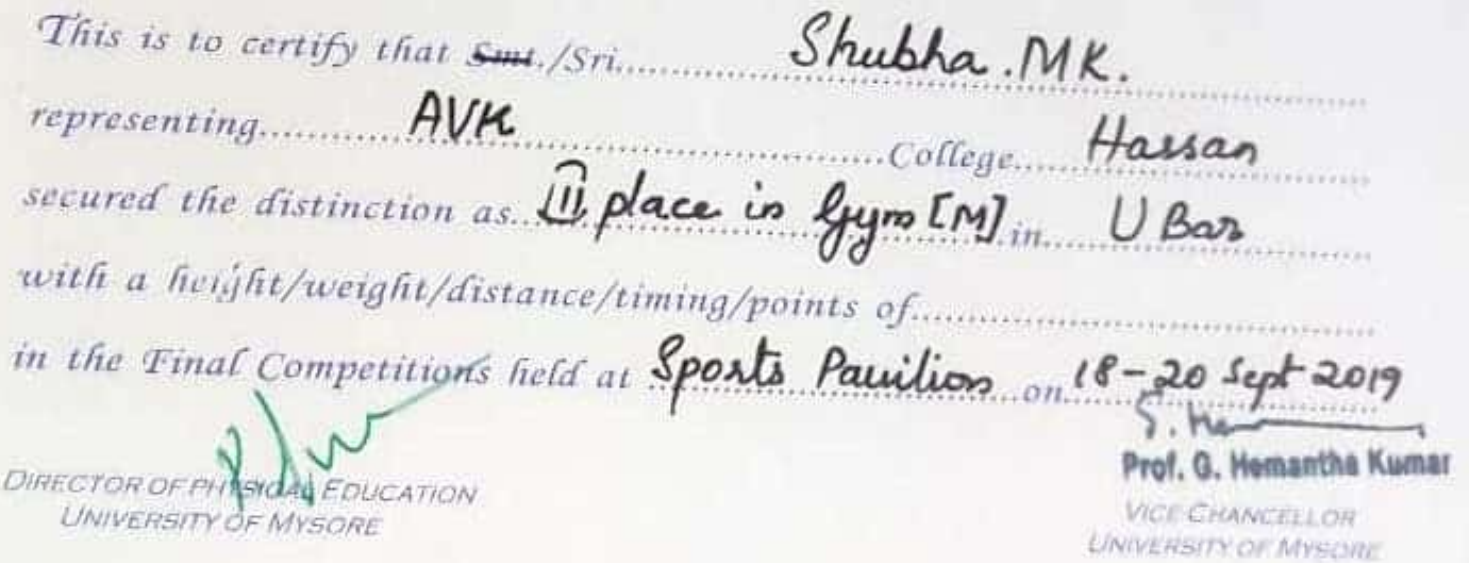 This is to certify that Smt./Sri. Shubha .MK.
representing AVK College Hassan
secured the distinction as II place in Gym [M] in U Bar
with a height/weight/distance/timing/points of
in the Final Competitions held at Sports Pavilion on 18-20 Sept 2019
Prof. G. Hemantha Kumar
DIRECTOR OF PHYSICAL EDUCATION
UNIVERSITY OF MYSORE
VICE CHANCELLOR
UNIVERSITY OF MYSORE